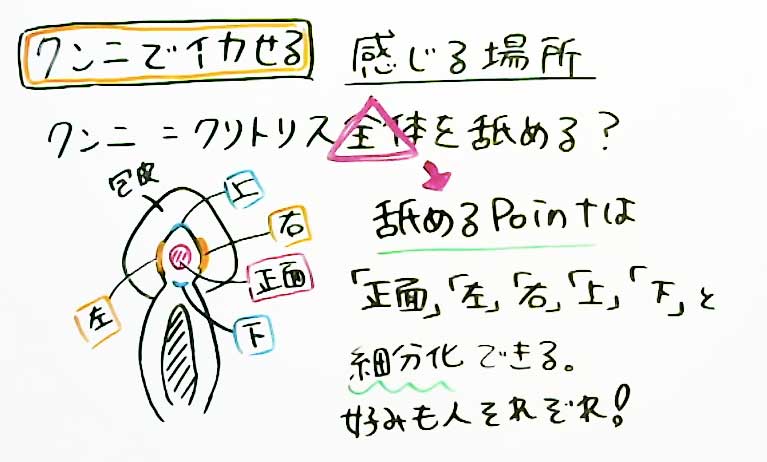 クンニでイカせる 感じる場所
クンニ = クリトリス全体を舐める?
包皮
上
右
正面
左
下
舐めるPointは
「正面」「左」「右」「上」「下」と
細分化できる。
好みも人それぞれ!